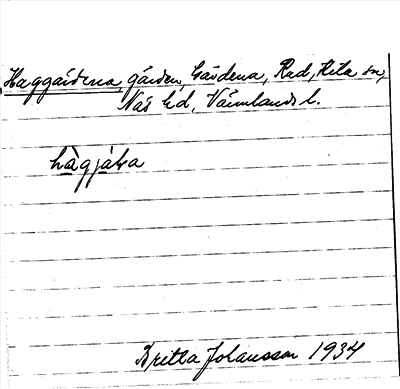 Haggårdena, gården, Gårdena, Rud, Kila sn,
Näs hd, Värmlands l.
hàgjàɫa
Britta Johansson 1934